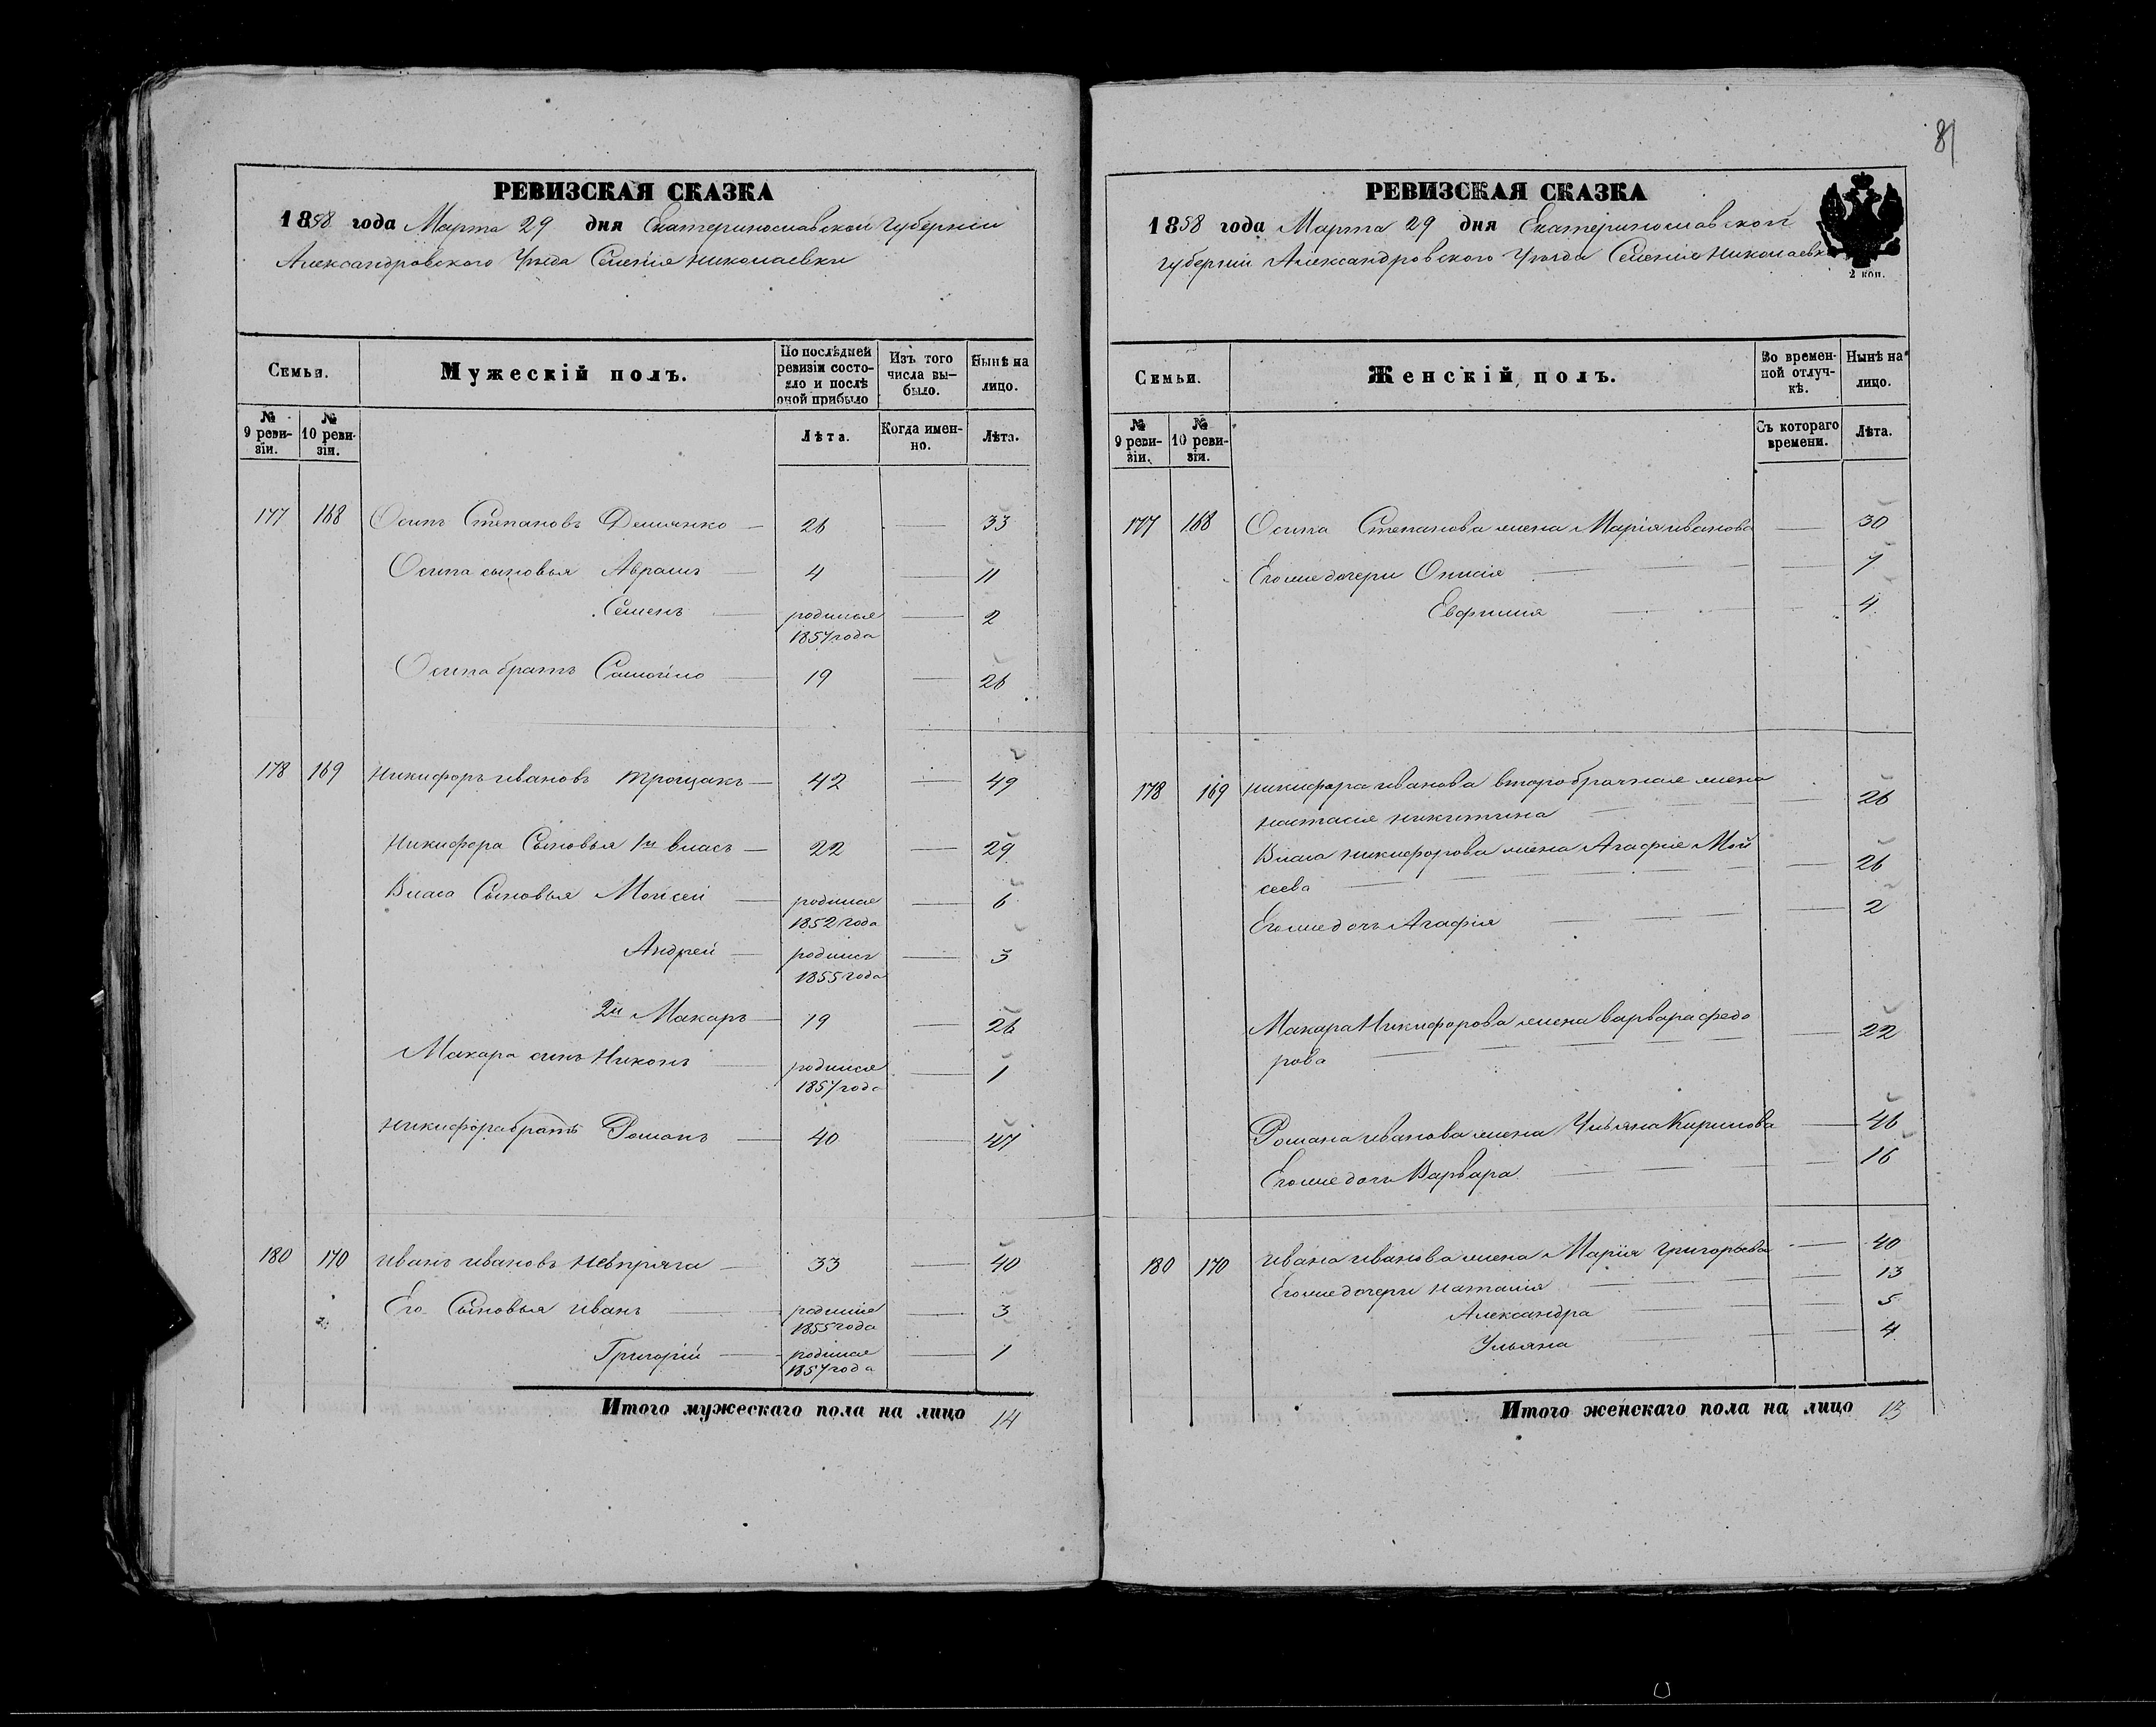 81
РЕВИЗСКАЯ СКАЗКА
1858 года Марта 29 дня Екатеринославской Губерніи
Александровского Уѣзда Селенія Николаевки
Семьи.
Мужескій полъ.
По послѣдней ревизіи состояло и послѣ оной прибыло
Изъ того числа вы-было.
Нынѣ на лицо.
№ 9 реви-зіи.
№ 10 реви-зіи.
Лѣта.
Когда имен-но.
Лѣта.
177 168 Осипъ Степановъ Демянко — 26 — 33
Осипа сыновья Аврамъ 4 — 11
Семенъ — родился 1857 года — 2
Осипа братъ Самойло — 19 — 26
178 169 Никифоръ Ивановъ Трощакъ — 42 — 49
Никифора Сыновья 1й Власъ — 22 — 29
Власа Сыновья Моисей — родился 1852 года — 6
Андрей — родился 1855 года — 3
2й Макаръ — 19 — 26
Макара сынъ Никонъ — родился 1857 года — 1
Никифора братъ Романъ — 40 — 47
180 170 Иванъ Ивановъ Невпряга — 33 — 40
Его Сыновья Иванъ — родился 1855 года — 3
Григорій — родился 1857 года — 1
Итого мужескаго пола на лицо 14
РЕВИЗСКАЯ СКАЗКА
1858 года Марта 29 дня Екатеринославской
Губерніи Александровского Уѣзда Селенія Николаевки
2 коп.
Семьи.
Женскій полъ.
Во времен-ной отлуч-кѣ.
Нынѣ на лицо.
№ 9 реви-зіи.
№ 10 реви-зіи.
Съ котораго времени.
Лѣта.
177 168 Осипа Степанова жена Марія Иванова — 30
Его же дочери — 7
Евфимия — 4
178 169 Никифора Иванова второбрачная жена
Настасія Никитина — 26
Власа Никифорова жена Агафія Мой
сеева — 26
Его же дочь Агафія — 2
Макара Никифорова жена Варвара Федо
рова — 22
Романа Иванова жена Ульяна Кирилова — 46
Его же дочь Варвара — 16
180 170 Ивана Иванова жена Марія Григорьева — 40
Его же дочери Наталія — 13
Александра — 5
Ульяна — 4
Итого женскаго пола на лицо 13